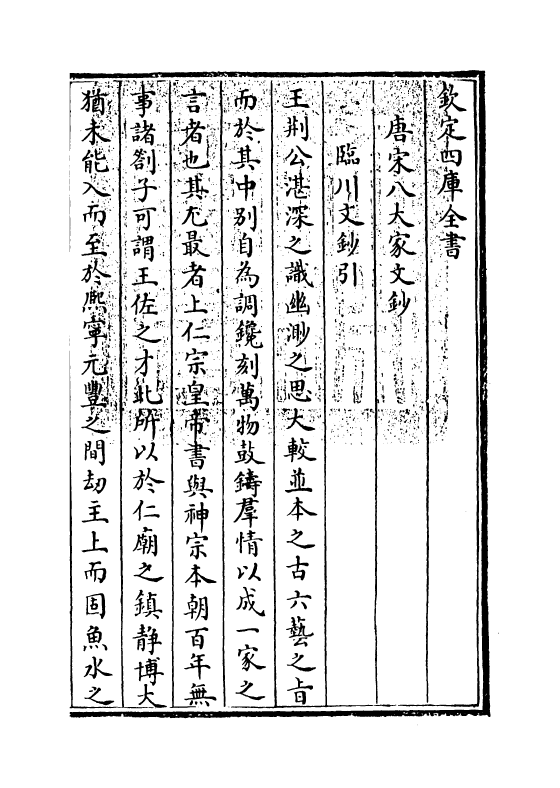 欽定四庫全書
唐宋八大家文鈔
臨川文鈔引
王荆公湛深之識幽渺之思大較並本之古六藝之旨
而於其中别自為調鑱刻萬物鼓鑄羣情以成一家之
言者也其尤最者上仁宗皇帝書與神宗本朝百年無
事諸劄子可謂王佐之才此所以於仁廟之鎮静博大
猶未能入而至於熈寧元豐之間劫主上而固魚水之